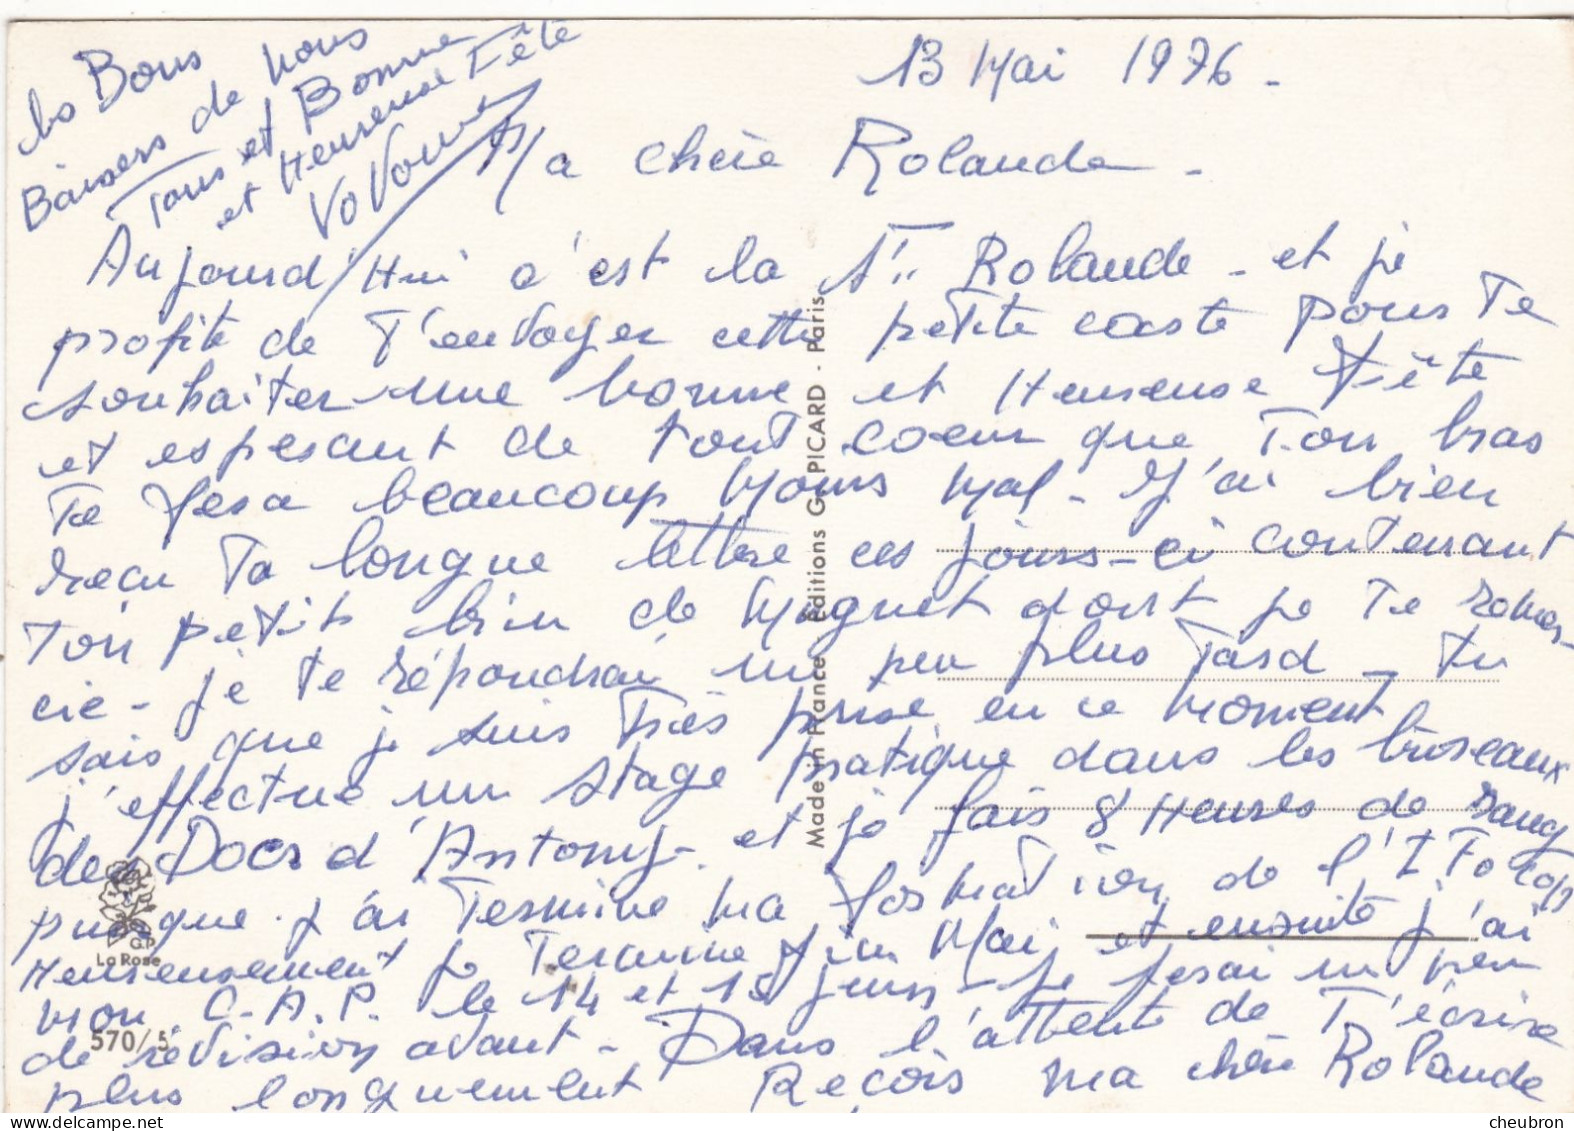 13 Mai 1976 -
Ma chère Rolande -
Aujourd'Hui c'est la Ste Rolande - et je
profite de T'envoyer cette petite carte pour Te
souhaiter une bonne et Heureuse Fête
et esperant de tout coeur que Ton bras
Te fera beaucoup Moins Mal - J'ai bien
reçu Ta longue lettre ces jours-ci contenant
Ton petit brin de Muguet dont je Te remer-
cie - je te répondrai un peu plus Tard - tu
sais que je suis Très prise en ce Moment
j'effectue un stage pratique dans les bureaux
de Docs d'Antony - et je fais 8 Heures de
puisque j'ai Terminé ma formation de l'
Heureusement je Termine fin Mai et ensuite j'ai
mon C.A.P. le 14 et 15 juin - je ferai un peu
de révision avant - Dans l'attente de T'écrire
plus longuement Reçois ma chère Rolande
les Bons
Baisers de nous
Tous et Bonne
et Heureuse Fête
VoVonne
Made in France Éditions G. PICARD - Paris
G.P
La Rose
570/5
cheubron